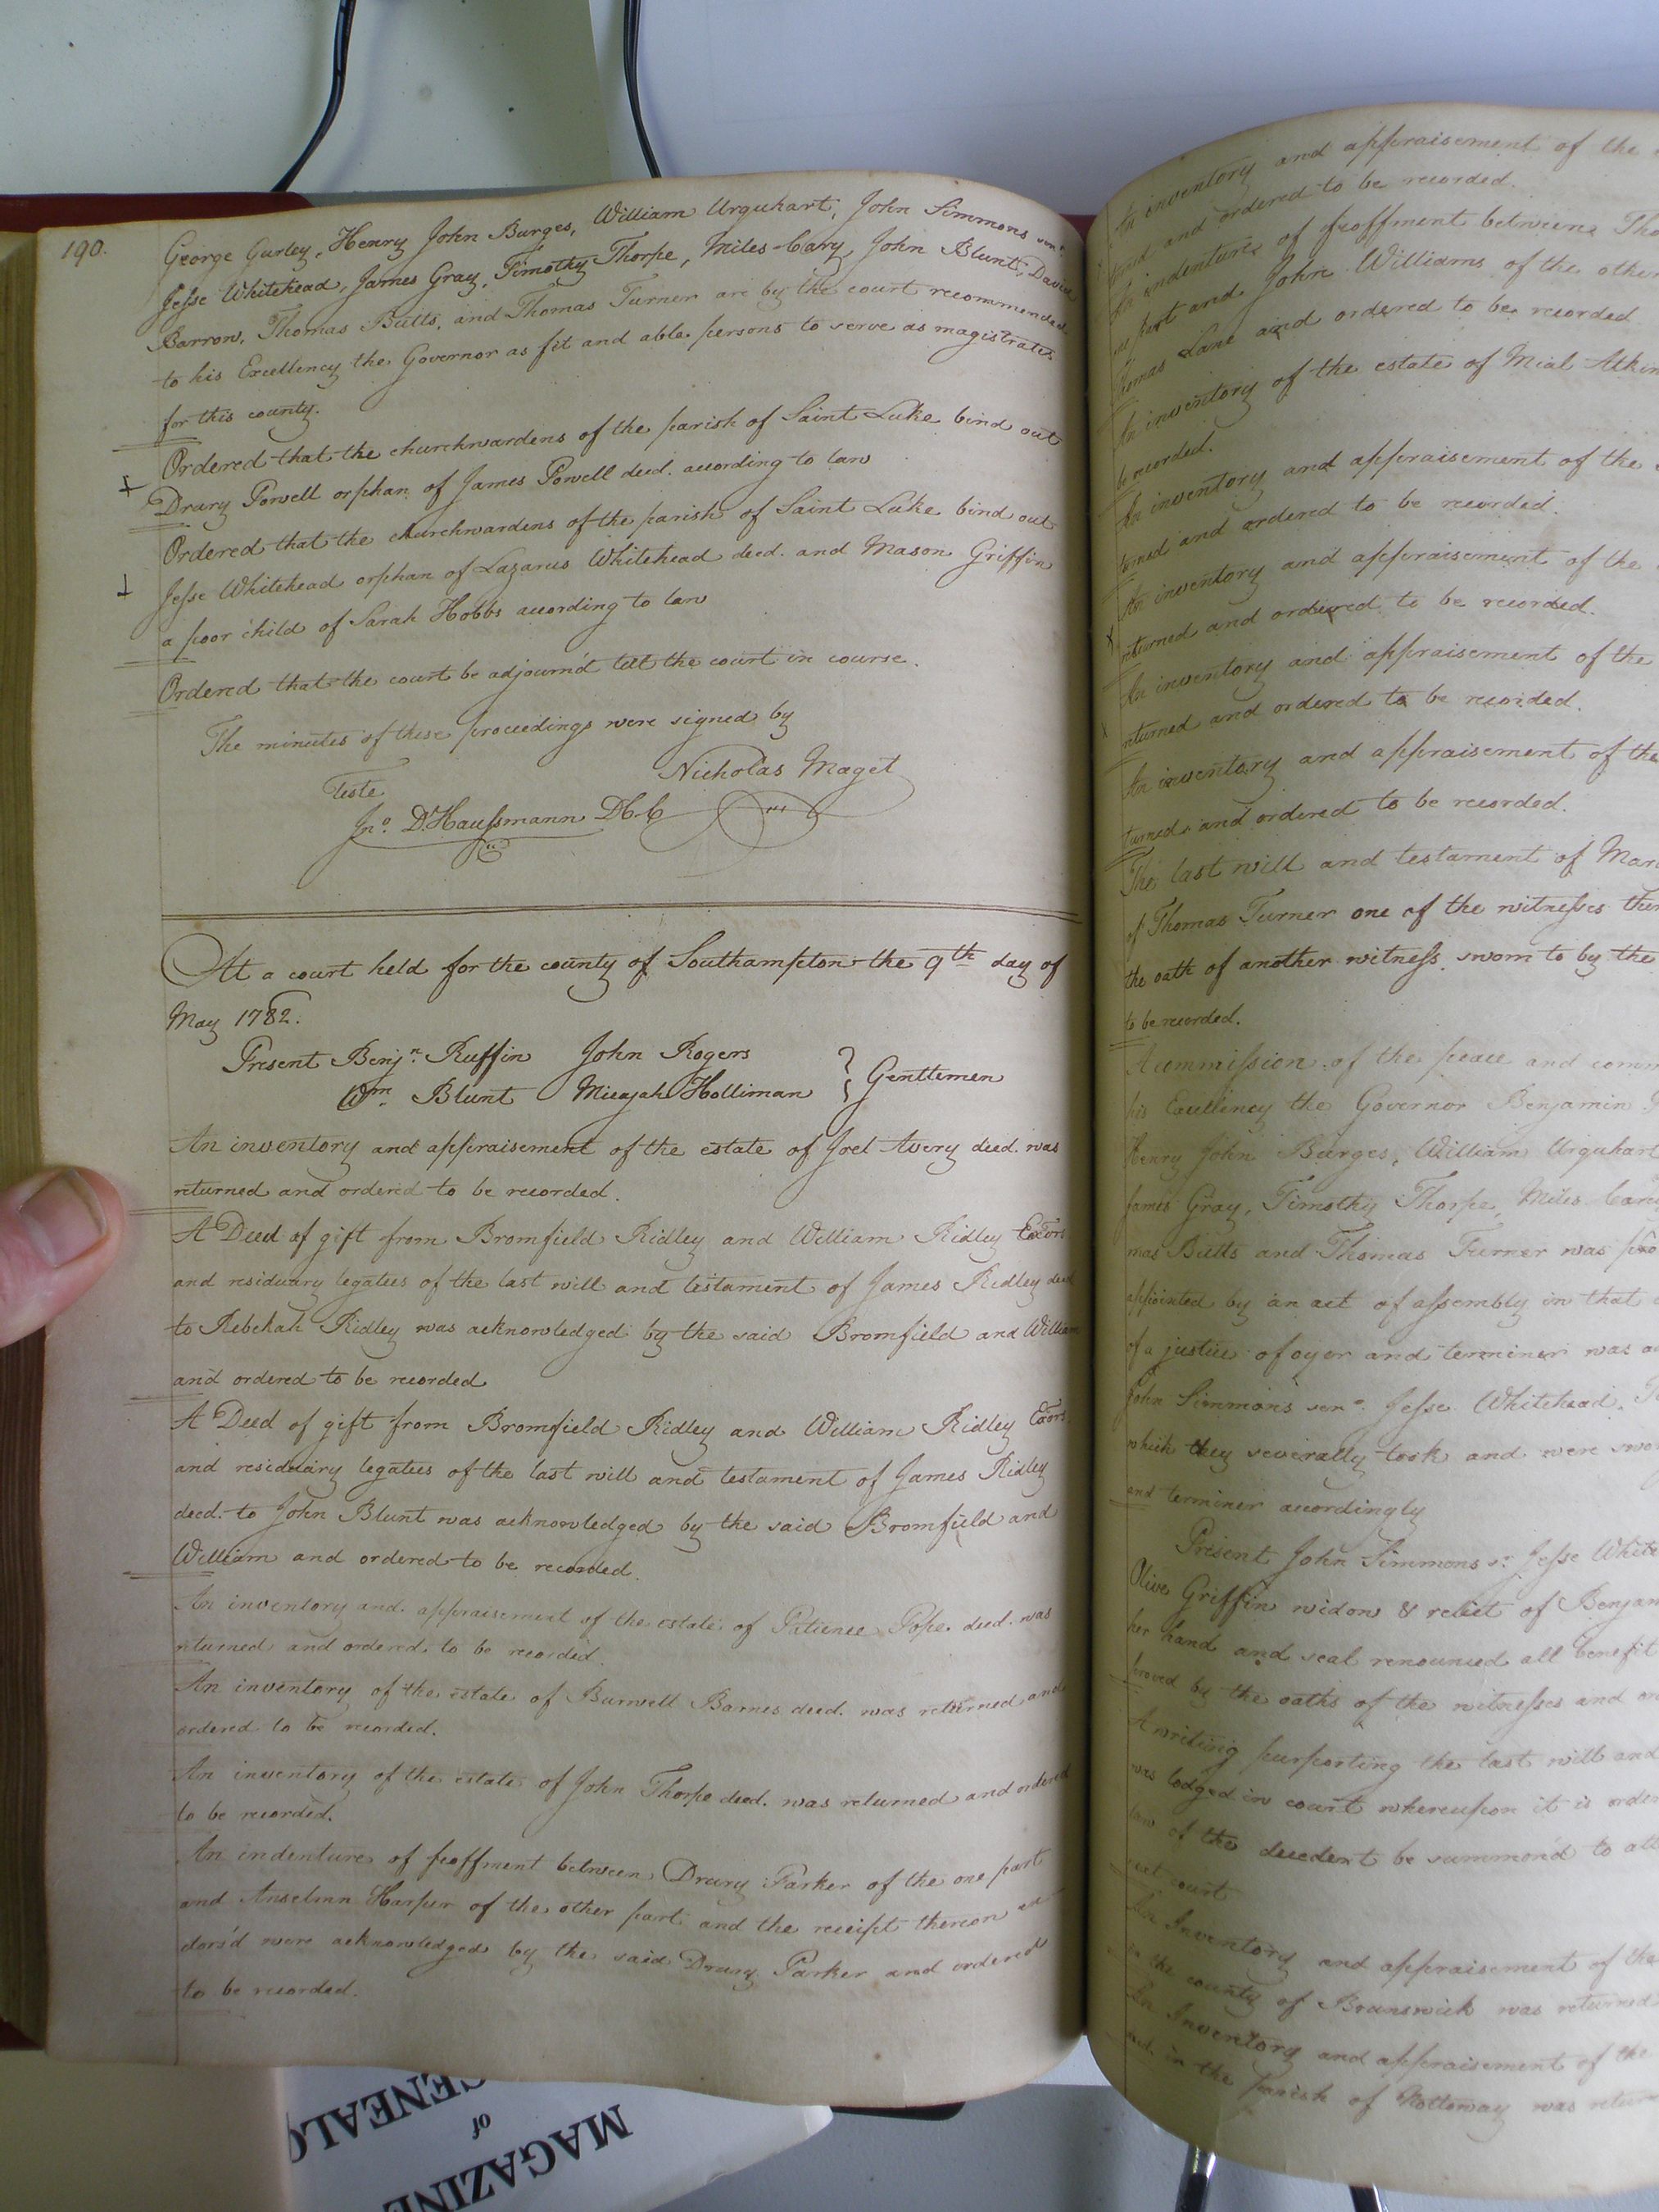 190.
George Gurley, Henry John Burges, William Urquhart, John Simmons senr.
Jesse Whitehead, James Gray, Timothy Thorpe, Miles Cary, John Blunt, David
Barrow, Thomas Butts, and Thomas Turner are by the court recommended
to his Excellency the Governor as fit and able persons to serve as magistrates
for this county.
Ordered that the churchwardens of the parish of Saint Luke bind out
Drury Powell orphan of James Powell deed. according to law
Ordered that the churchwardens of the parish of Saint Luke bind out
Jesse Whitehead orphan of Lazarus Whitehead deed. and Mason Griffin
a poor child of Sarah Hobbs according to law
Ordered that the court be adjourn'd till the court in course.
The minutes of these proceedings were signed by
Nicholas Maget
Teste
Jno. D. Haussmann DCC
At a court held for the county of Southampton the 9th day of
May 1782.
Present Benjn. Ruffin John Rogers
Wm. Blunt Micajah Holliman } Gentlemen
An inventory and appraisement of the estate of Joel Avery deed. was
returned and ordered to be recorded.
A Deed of gift from Bromfield Ridley and William Ridley Exors
and residuary legatees of the last will and testament of James Ridley deed
to Rebekah Ridley was acknowledged by the said Bromfield and William
and ordered to be recorded
A Deed of gift from Bromfield Ridley and William Ridley Exors.
and residuary legatees of the last will and testament of James Ridley
deed. to John Blunt was acknowledged by the said Bromfield and
William and ordered to be recorded.
An inventory and appraisement of the estate of Patience Pope deed. was
returned and ordered to be recorded.
An inventory of the estate of Burwell Barnes deed. was returned and
ordered to be recorded.
An inventory of the estate of John Thorpe deed. was returned and ordered
to be recorded.
An indenture of feoffment between Drury Parker of the one part
and Anselmn Harper of the other part and the receipt thereon en
dors'd were acknowledged by the said Drury Parker and ordered
to be recorded.
An inventory and appraisement of the
and ordered to be recorded.
An indenture of feoffment between Tho
part and John Williams of the other
Thomas Lane and ordered to be recorded
An inventory of the estate of Mial Atkin
be recorded.
An inventory and appraisement of the
turned and ordered to be recorded.
An inventory and appraisement of the
returned and ordered to be recorded.
An inventory and appraisement of the
returned and ordered to be recorded.
An inventory and appraisement of the
turned and ordered to be recorded.
The last will and testament of Mar
of Thomas Turner one of the witnesses ther
the oath of another witness sworn to by the
to be recorded.
A commission of the peace and comm
his Excellency the Governor Benjamin
Henry John Burges, William Urquhart
James Gray, Timothy Thorpe, Miles Cary
mas Butts and Thomas Turner was pro
appointed by an act of assembly in that
of a justice of oyer and terminer was a
John Simmons senr. Jesse Whitehead,
which they severally took and were swo
and terminer accordingly
Present John Simmons sr. Jesse White
Olive Griffin widow & relict of Benjam
her hand and seal renounced all benefit
proved by the oaths of the witnesses and or
A writing purporting the last will and
was lodged in court whereupon it is order
law of the decedent be summon'd to att
next court
An Inventory and appraisement of the
in the county of Brunswick was returned
An Inventory and appraisement of the
in the parish of Nottoway was return
MAGAZINE
of
GENEALO